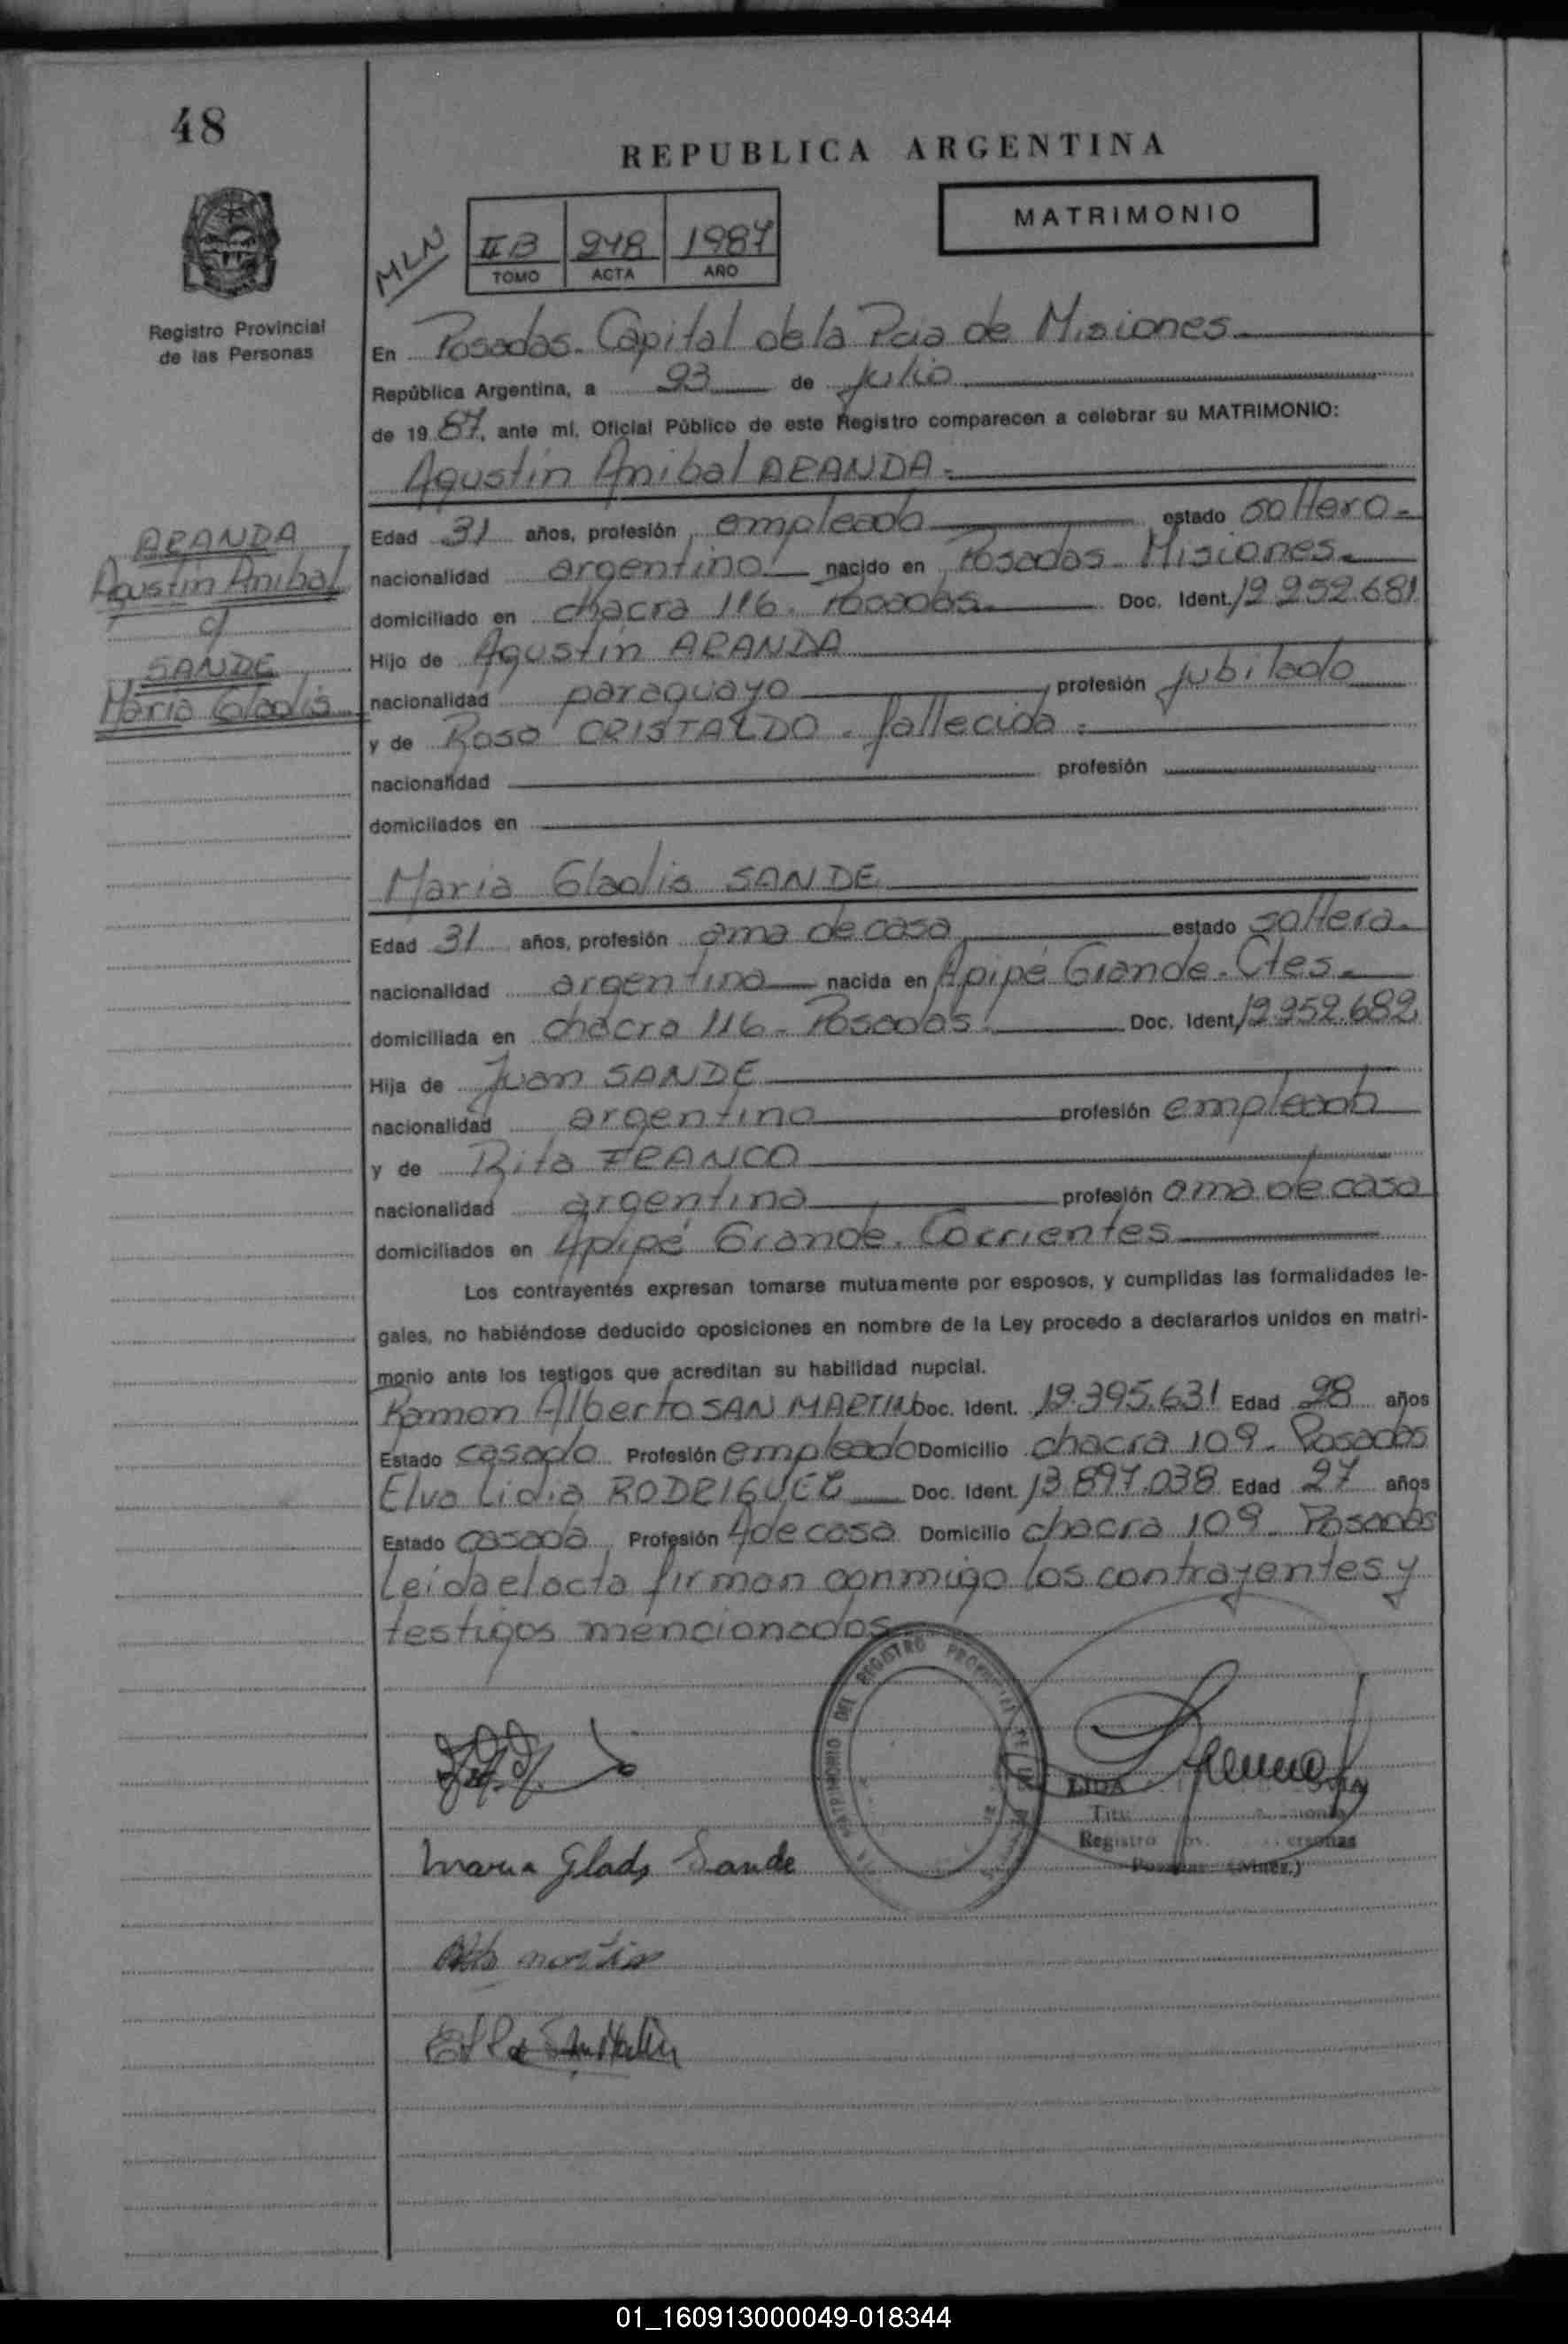 48
REPUBLICA ARGENTINA
MATRIMONIO
MLN
II B 248 1987
TOMO ACTA AÑO
Registro Provincial
de las Personas
En Posadas. Capital de la Pcia de Misiones
República Argentina, a 23 de julio
de 1987, ante mí, Oficial Público de este Registro comparecen a celebrar su MATRIMONIO:
Agustín Anibal ARANDA.
ARANDA
Agustín Anibal
c/
SANDE
Maria Gladis
Edad 31 años, profesión empleado estado soltero.
nacionalidad argentino nacido en Posadas. Misiones.
domiciliado en chacra 116. Posadas. Doc. Ident. 12.952.681
Hijo de Agustín ARANDA
nacionalidad paraguayo profesión jubilado
y de Rosa CRISTALDO. fallecida.
nacionalidad profesión
domiciliados en
Maria Gladis SANDE
Edad 31 años, profesión ama de casa estado soltera.
nacionalidad argentina nacida en Apipé Grande. Ctes.
domiciliada en chacra 116. Posadas. Doc. Ident. 12.952.682
Hija de Juan SANDE
nacionalidad argentino profesión empleado
y de Rita FRANCO
nacionalidad argentina profesión ama de casa
domiciliados en Apipé Grande. Corrientes
Los contrayentes expresan tomarse mutuamente por esposos, y cumplidas las formalidades le-
gales, no habiéndose deducido oposiciones en nombre de la Ley procedo a declararlos unidos en matri-
monio ante los testigos que acreditan su habilidad nupcial.
Ramon Alberto SAN MARTIN Doc. Ident. 12.395.631 Edad 28 años
Estado casado Profesión empleado Domicilio chacra 109. Posadas
Elva Lidia RODRIGUEZ Doc. Ident. 13.897.038 Edad 27 años
Estado casada Profesión A de casa Domicilio chacra 109. Posadas
Leída el acta firman conmigo los contrayentes y
testigos mencionados
DEL REGISTRO
LIDA
Registro
Maria Glady Sande
01_160913000049-018344